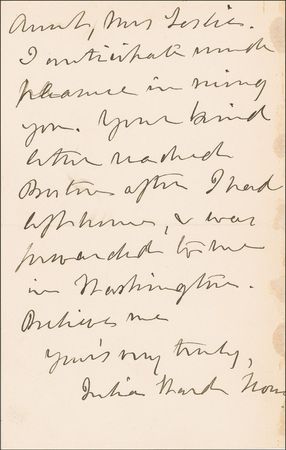 Aunt, Mrs Leslie.
I anticipate much
pleasure in seeing
you. Your kind
letter reached
Boston after I had
left home, & was
forwarded to me
in Washington.
Believe me
yours very truly,
Julia Ward Howe